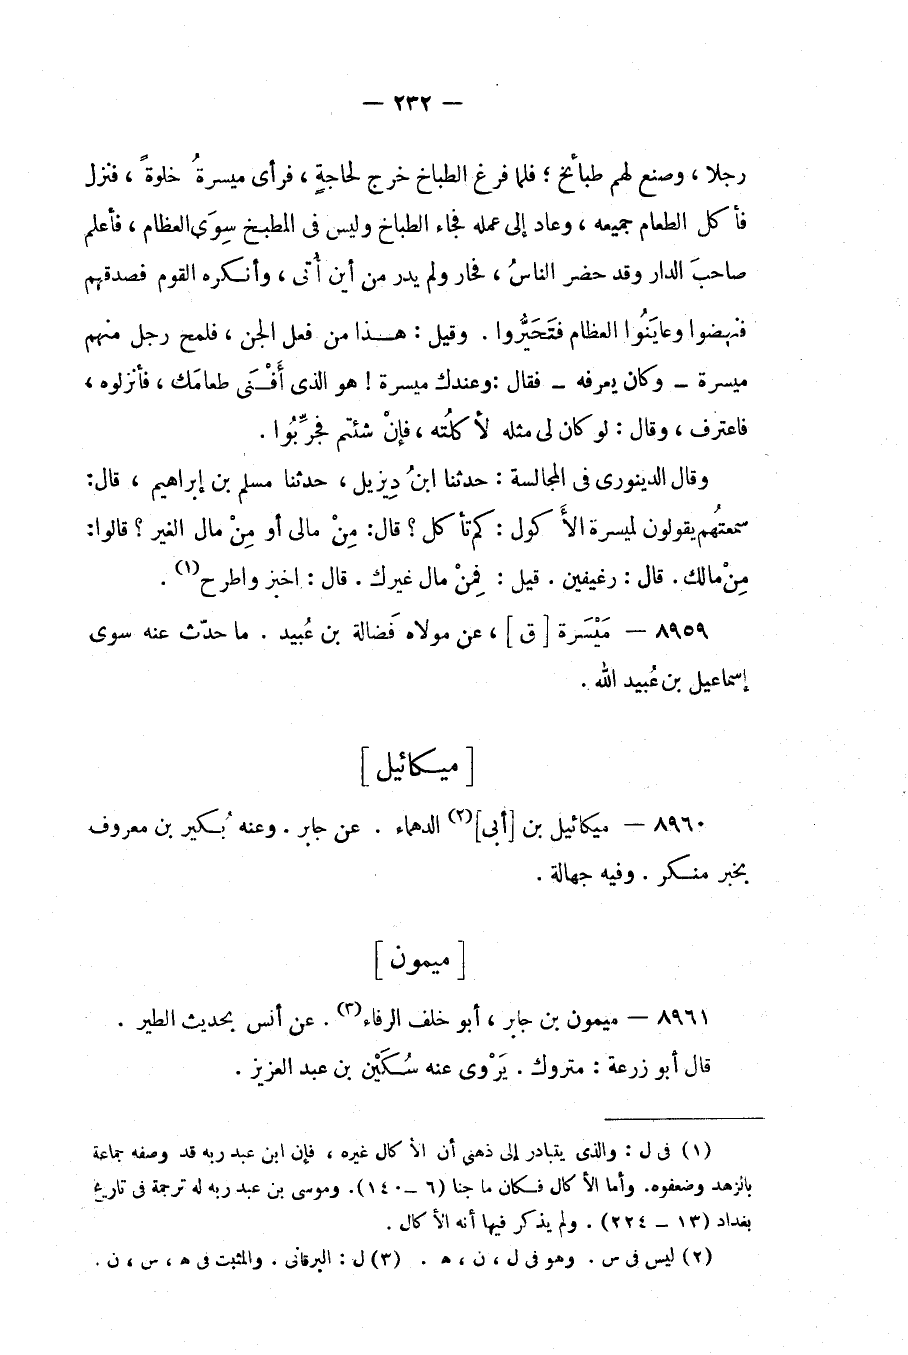 — ٢٣٢ —
رجلا ، وصنع لهم طبائخ ؛ فلما فرغ الطباخ خرج لحاجةٍ ، فرأى ميسرةُ خلوةً ، فنزل
فأكل الطعام جميعه ، وعاد إلى عمله فجاء الطباخ وليس فى المطبخ سِوَى العظام ، فأعلم
صاحبَ الدار وقد حضر الناسُ ، فحار ولم يدر من أين أُتى ، وأنكره القوم فصدقهم
فنهضوا وعايَنُوا العظام فتَحَيَّروا . وقيل : هذا من فعل الجن ، فلمح رجل منهم
ميسرة – وكان يعرفه – فقال : وعندك ميسرة ! هو الذى أَفْنَى طعامَك ، فأنزلوه ،
فاعترف ، وقال : لو كان لى مثله لأكلْتُه ، فإنْ شئتم فجرِّبُوا .
وقال الدينورى فى المجالسة : حدثنا ابنُ دِيزيل ، حدثنا مسلم بن إبراهيم ، قال:
سمعتُهم يقولون لميسرة الأَكول : كم تأكل ؟ قال: مِنْ مالى أو مِنْ مال الغير ؟ قالوا:
مِنْ مالك . قال : رغيفين . قيل : فمِنْ مال غيرك . قال : اخبز واطرح(١) .
٨٩٥٩ — مَيْسَرة [ ق ] ، عن مولاه فَضالة بن عُبيد . ما حدّث عنه سوى
إسماعيل بن عُبيد الله .
[ ميكائيل ]
٨٩٦٠ — ميكائيل بن [أبى](٢) الدهماء . عن جابر . وعنه بُكير بن معروف
بخبر منكر . وفيه جهالة .
[ ميمون ]
٨٩٦١ — ميمون بن جابر ، أبو خلف الرفاء(٣) . عن أنس بحديث الطير .
قال أبو زرعة : متروك . يَرْوى عنه سُكَيْن بن عبد العزيز .
(١) فى ل : والذى يتبادر إلى ذهنى أن الأكال غيره ، فإن ابن عبد ربه قد وصفه جماعة
بالزهد وضعفوه. وأما الأكال فكان ماجنا (٦ – ١٤٠). وموسى بن عبد ربه له ترجمة فى تاريخ
بغداد (١٣ – ٢٢٤) . ولم يذكر فيها أنه الأكال .
(٢) ليس فى س . وهو فى ل ، ن ، هـ . (٣) ل : البرقانى . والمثبت فى هـ ، س ، ن .